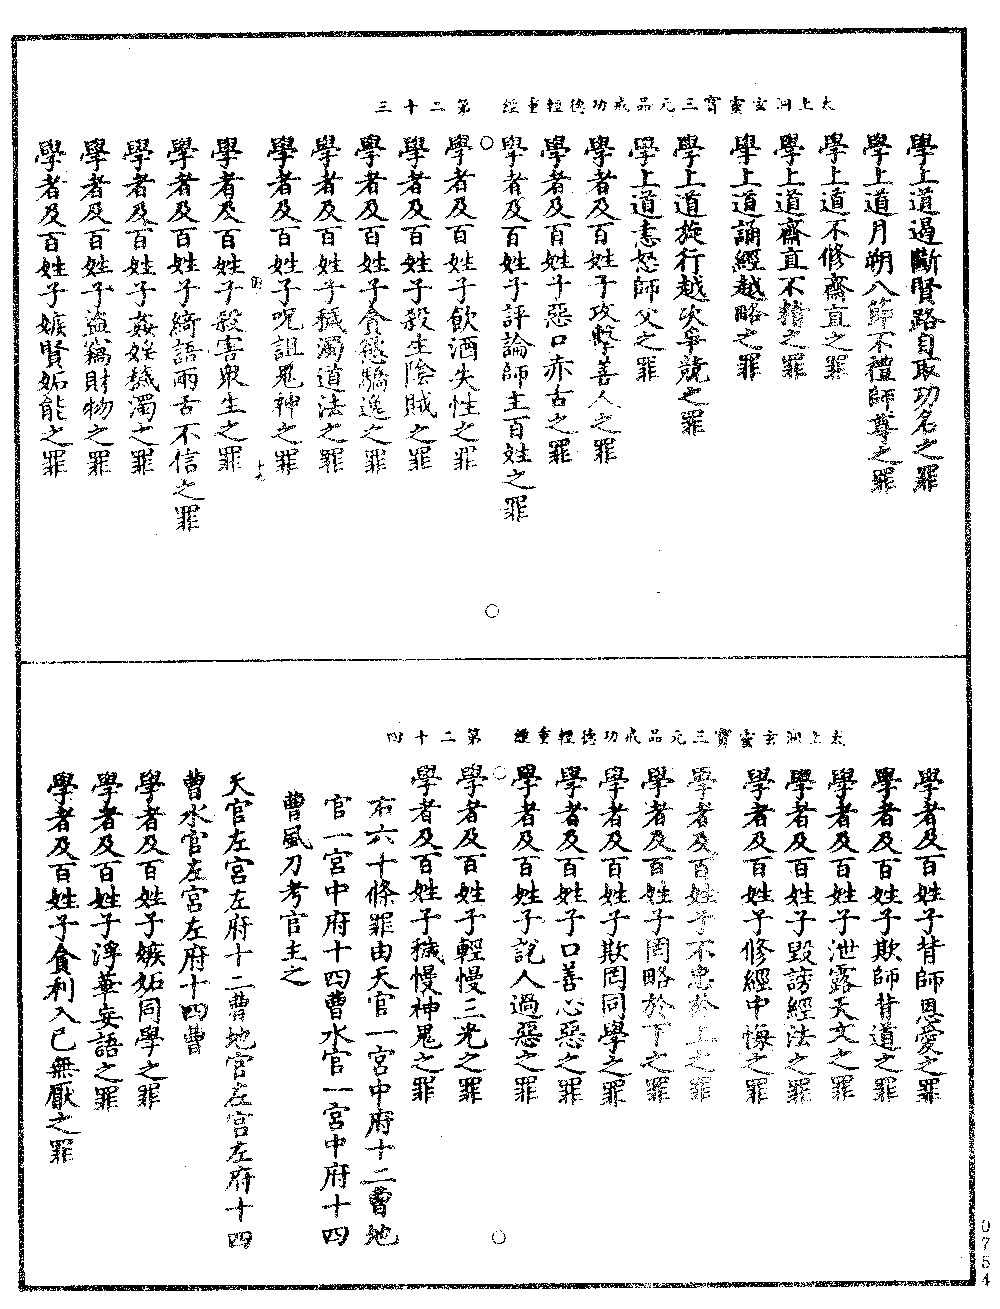 太上洞玄靈寶三元品戒功德輕重經　第二十三
學上道遏斷賢路自取功名之罪
學上道月朔八節不禮師尊之罪
學上道不修齋直之罪
學上道齋直不精之罪
學上道誦經越略之罪
學上道旋行越次爭競之罪
學上道恚怒師父之罪
學者及百姓子攻擊善人之罪
學者及百姓子惡口赤舌之罪
學者及百姓子評論師主百姓之罪
學者及百姓子飲酒失性之罪
學者及百姓子殺生陰賊之罪
學者及百姓子貪慾驕逸之罪
學者及百姓子穢濁道法之罪
學者及百姓子呪詛鬼神之罪
十九
學者及百姓子殺害衆生之罪
學者及百姓子綺語兩舌不信之罪
學者及百姓子姦婬穢濁之罪
學者及百姓子盜竊財物之罪
學者及百姓子嫉賢妬能之罪
太上洞玄靈寶三元品戒功德輕重經　第二十四
學者及百姓子背師恩愛之罪
學者及百姓子欺師背道之罪
學者及百姓子泄露天文之罪
學者及百姓子毀謗經法之罪
學者及百姓子修經中悔之罪
學者及百姓子不忠於上之罪
學者及百姓子罔略於下之罪
學者及百姓子欺罔同學之罪
學者及百姓子口善心惡之罪
學者及百姓子說人過惡之罪
學者及百姓子輕慢三光之罪
學者及百姓子穢慢神鬼之罪
右六十條罪由天官一宮中府十二曹地
官一宮中府十四曹水官一宮中府十四
曹風刀考官主之
天官左宮左府十二曹地官左宮左府十四
曹水官左宮左府十四曹
學者及百姓子嫉妬同學之罪
學者及百姓子浮華妄語之罪
學者及百姓子貪利入已無厭之罪
0754